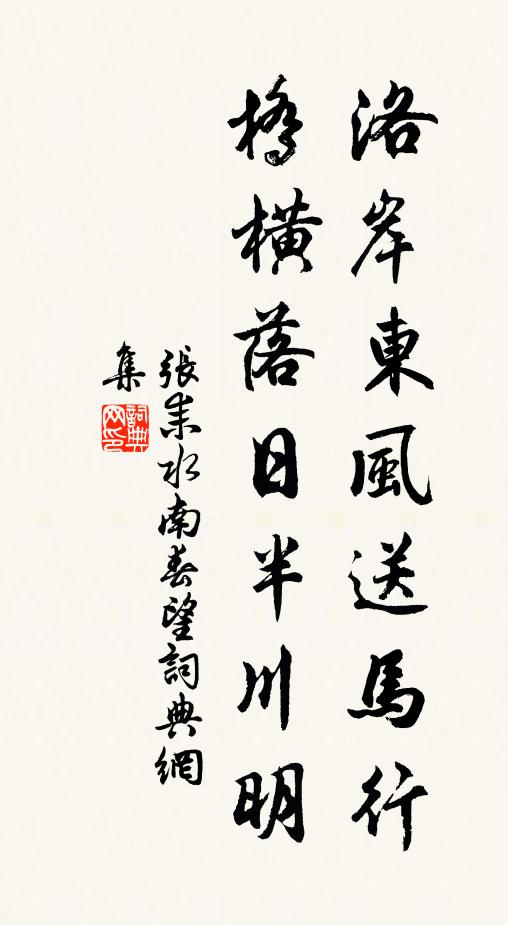 洛岸東風送馬行
橋橫落日半川明
張耒水南春望詞典網
集
詞典
网印